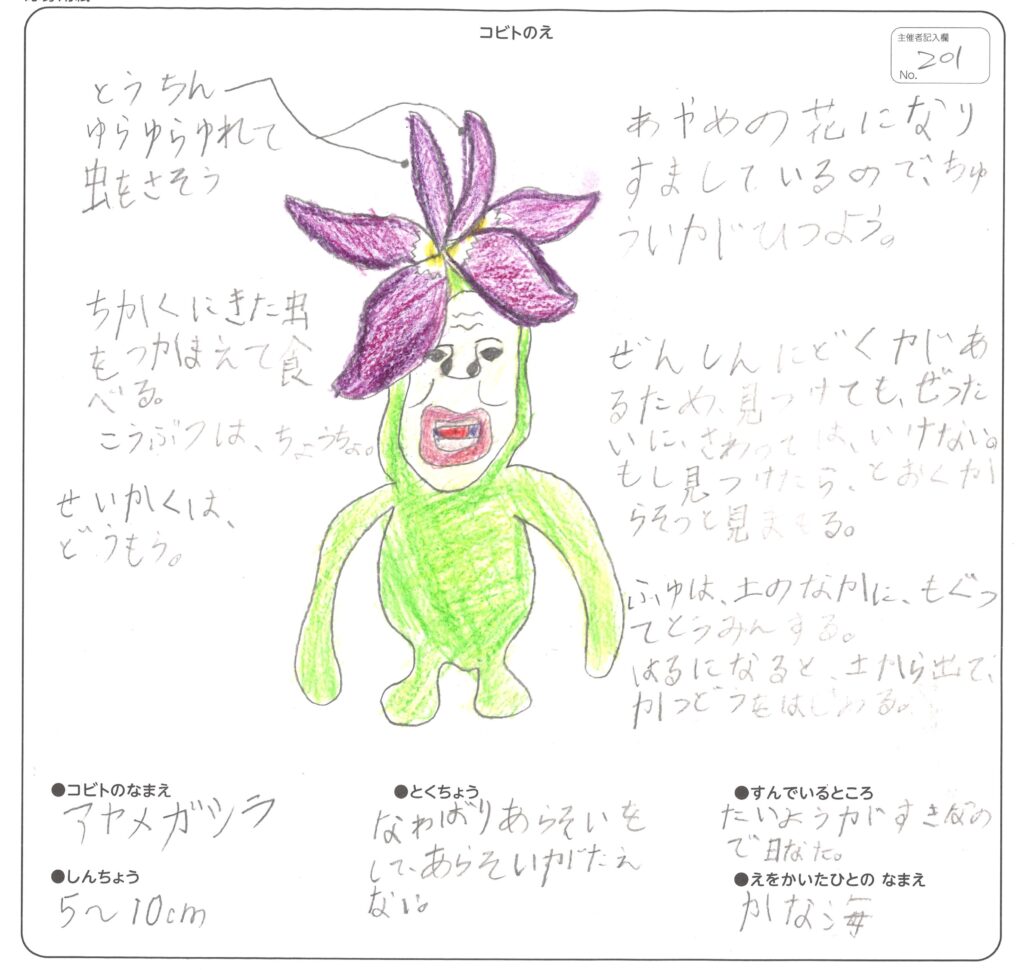 コビトのえ
主催者記入欄
No. 201
とうちん
ゆらゆらゆれて
虫をさそう
あやめの花になり
すましているので、ちゅ
ういがひつよう。
ちかくにきた虫
をつかまえて食
べる。
こうぶつは、ちょうちょ。
せいかくは、
どうもう。
ぜんしんにどくがあ
るため、見つけても、ぜった
いに、さわっては、いけない。
もし見つけたら、とおくか
らそっと見まもる。
ふゆは、土のなかに、もぐっ
てとうみんする。
はるになると、土から出て、
かつどうをはじめる。
●コビトのなまえ
アヤメガシラ
●しんちょう
5～10cm
●とくちょう
なわばりあらそいを
して、あらそいがたえ
ない。
●すんでいるところ
たいようがすきなの
で日なた。
●えをかいたひとの なまえ
かな海